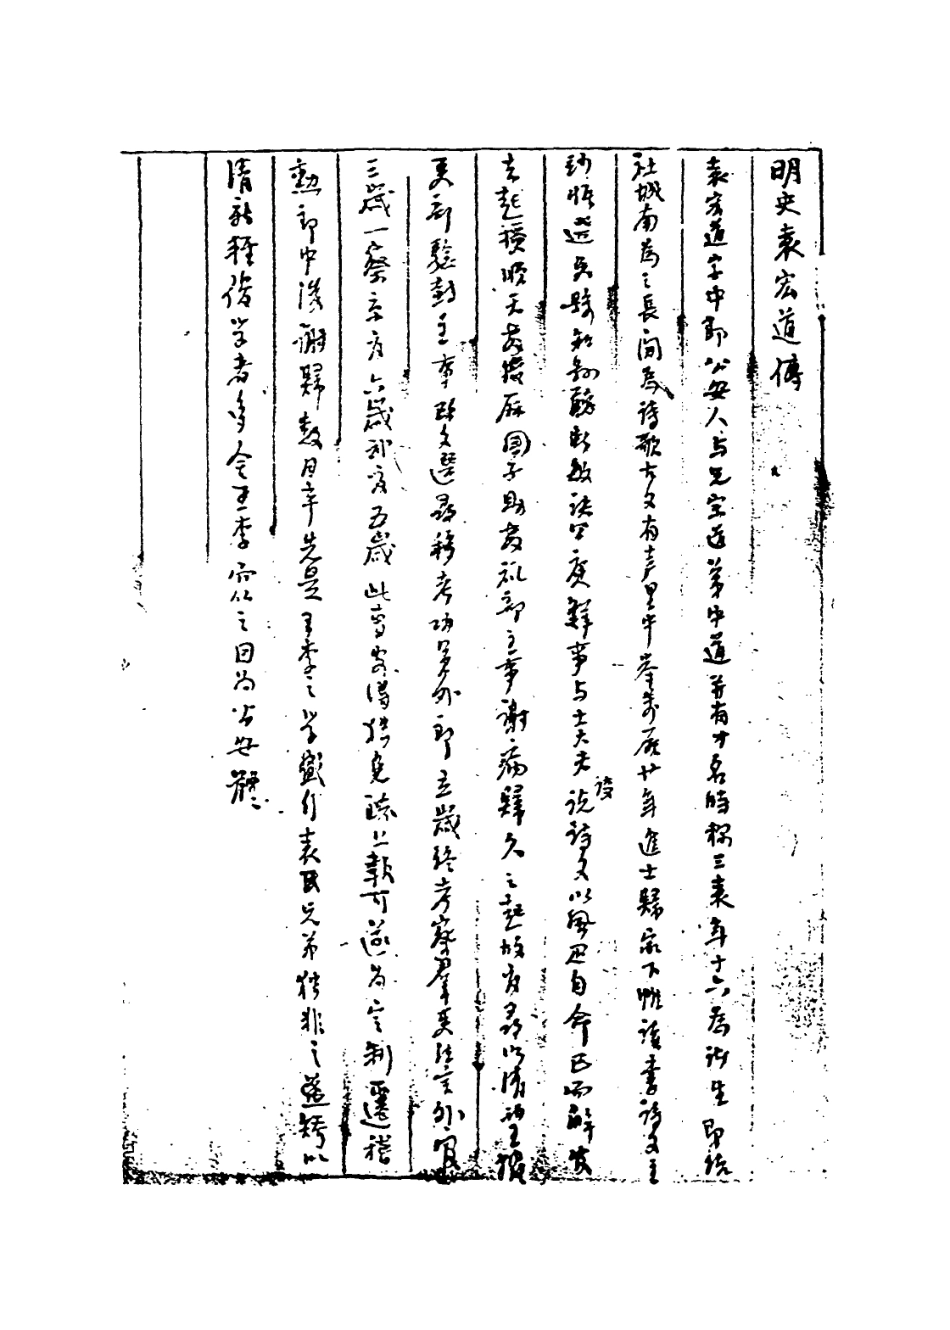 明史袁宏道傳
袁宏道字中郎公安人与兄宗道弟中道并有才名時稱三袁年十六為諸生即結
社城南為之長間為詩歌古文有声里中举萬历廿年進士歸家下帷讀書詩文主
妙悟選吳縣知縣聽断敏决公庭鮮事与士大夫谈說詩文以風雅自命已而解官
去起授順天教授历国子助教礼部主事謝病歸久之起故官尋以清望擢
吏部驗封主事改文選尋移考功員外郎立歲終考察羣吏法言外官
三歲一察京官六歲武官五歲此曹安得獨免疏上報可遂為定制遷稽
勲郎中後謝歸数月卒先是王李之学盛行袁氏兄弟独非之益矯以
清新輕俊学者多舍王李而從之目为公安體